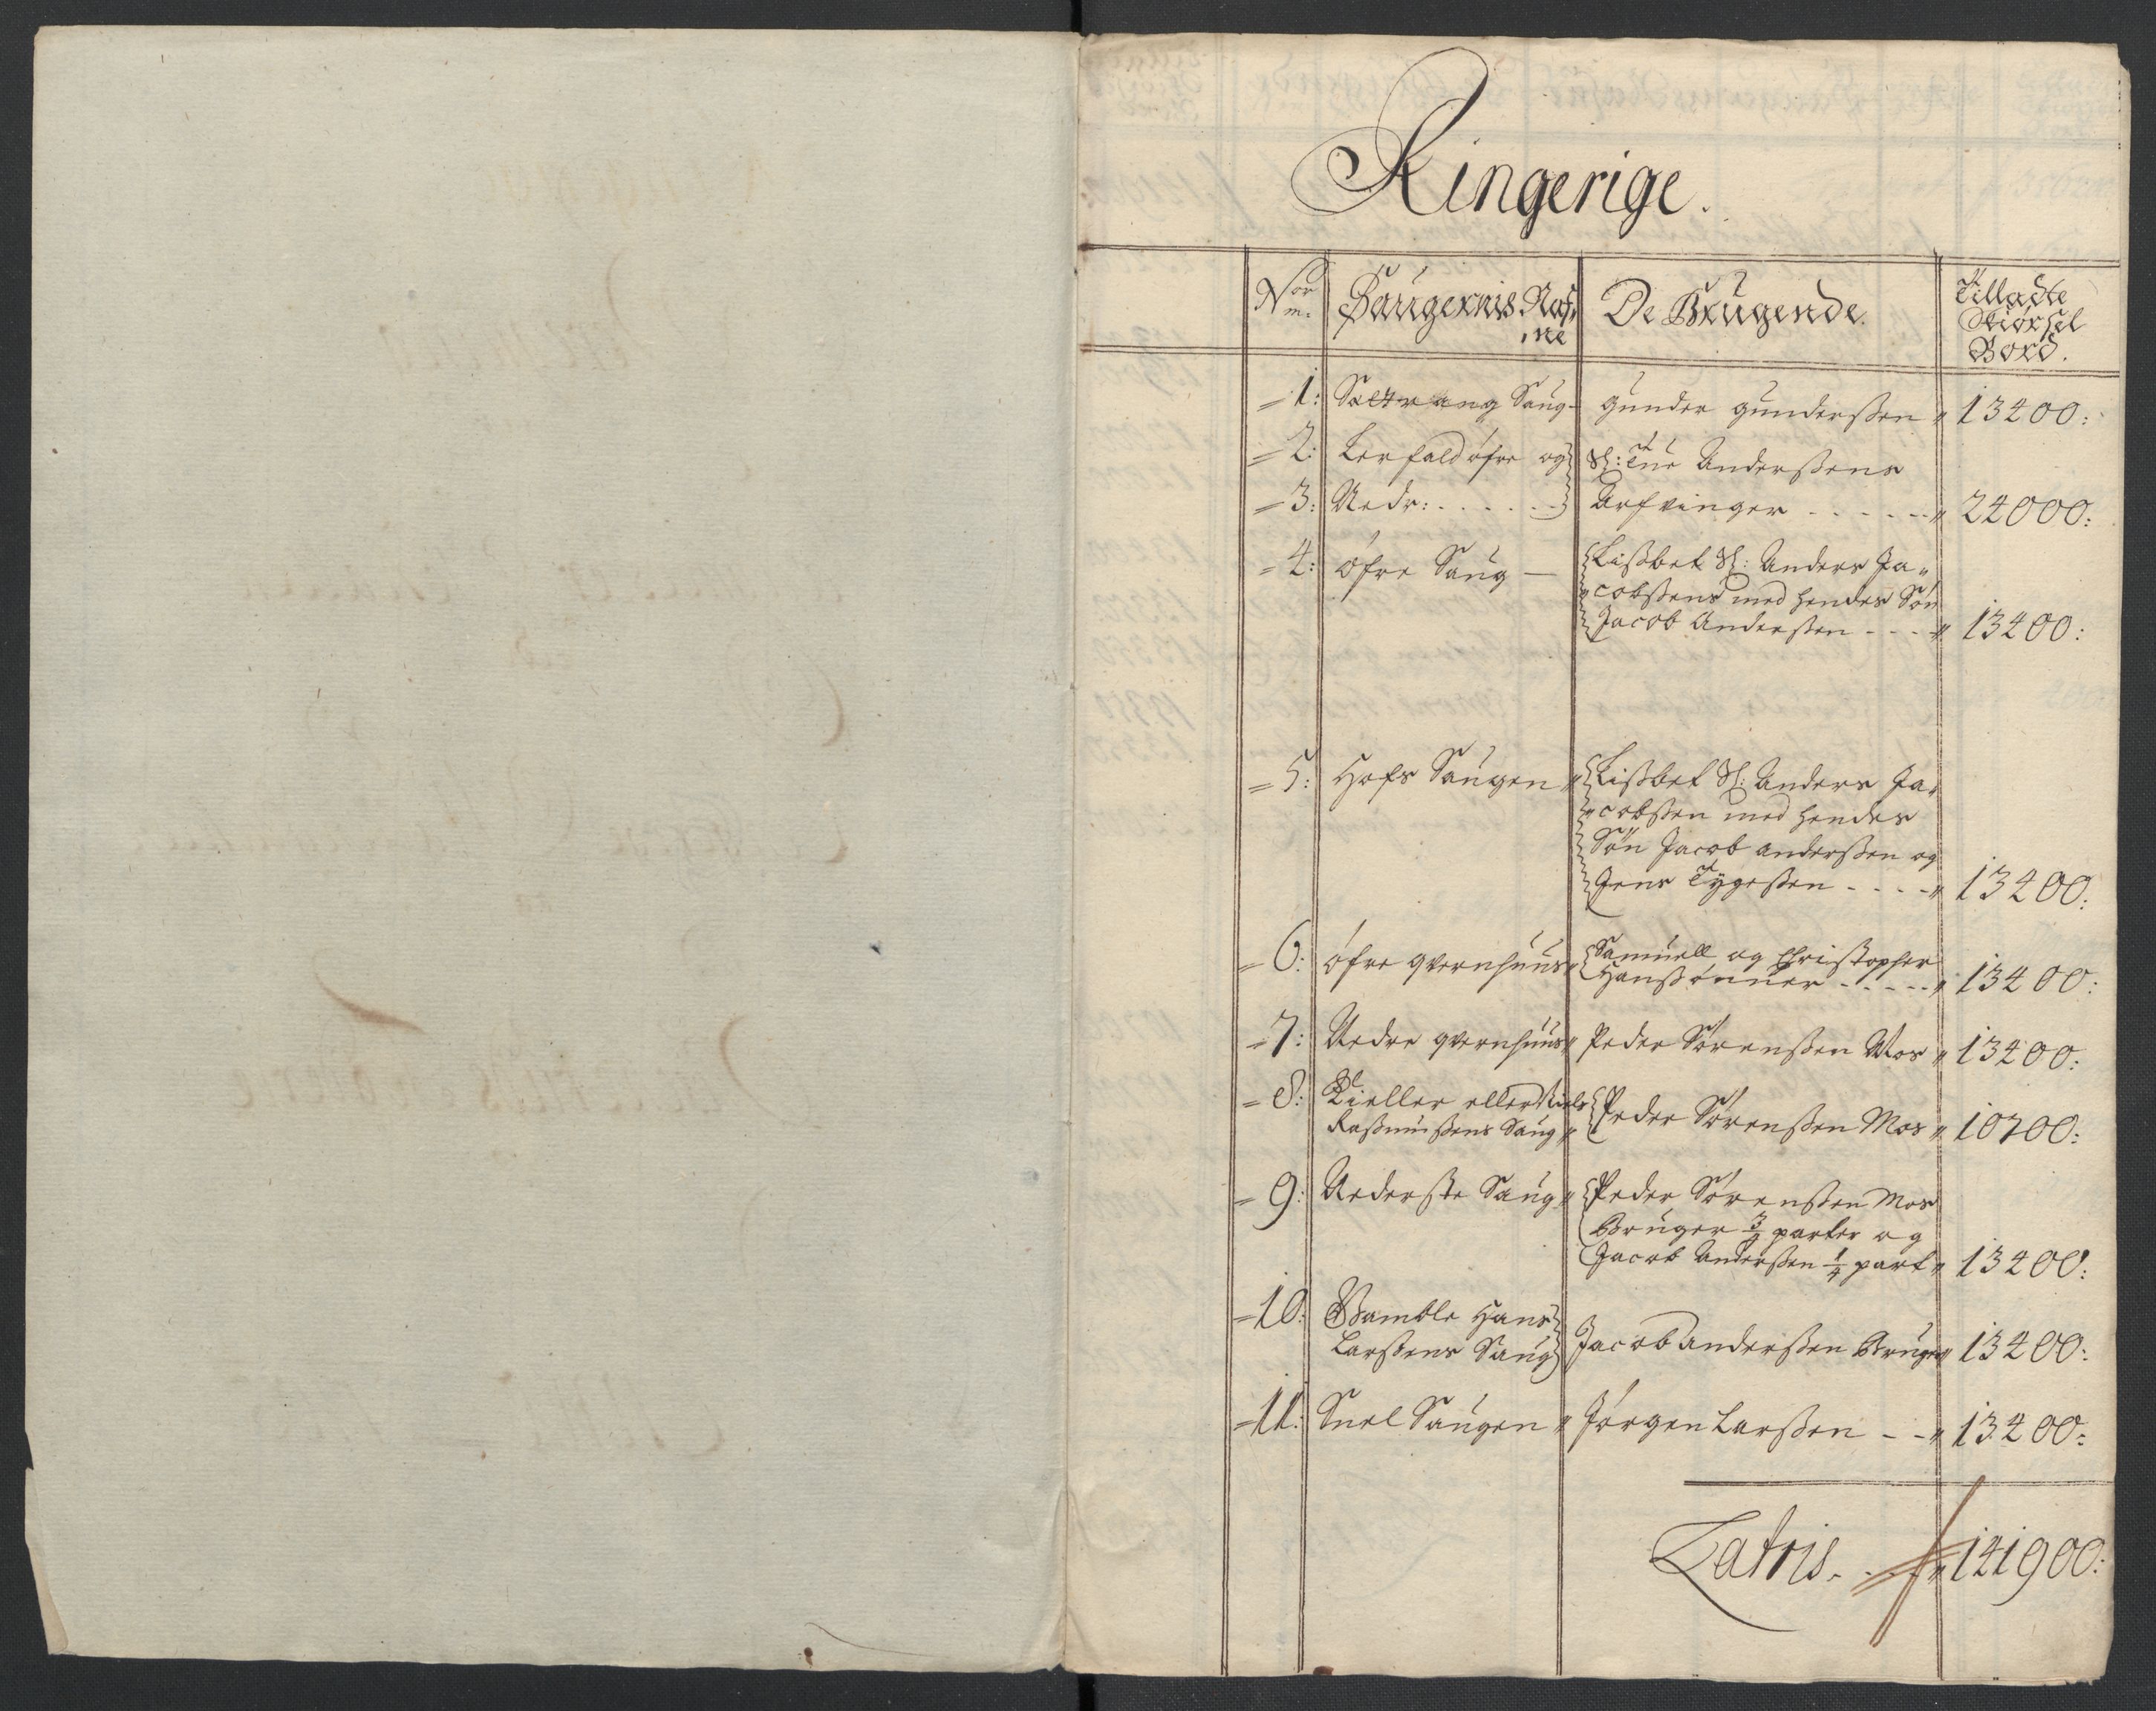 Ringerige.
Nor
m. Saugernis Naf,
,ne De Brugende. Tilladte
Skiørsel
Bord.
1: Saug gunder gunderßen 13400:
2: Lerfald øfre og Sl: Tue Anderßens
3: Nedr: . . . . . Arfvinger . . . . . 24000:
4: Øfre Saug — Lißbet Sl: Anders Ja,
cobßens med hendes Søn
Jacob Anderßen - - - 13400:
5: Hofs Saugen Lißbet Sl: Anders Ja,
cobßen med hendes
Søn Jacob anderßen og
Jens Tygeßen - - - - 13400:
6: øfre qvernhuus Samuell og Christopher
Hanßønner - - - - - 13400:
7: Nedre qvernhuus Peder Sørenßen Mos 13400:
8: Kieller eller Niels
Raßmußens Saug Peder Sørenßen Mos 10700:
9: Nederste Saug Peder Sørenßen Mos
Bruger 3/4 parter og
Jacob Anderßen 1/4 part 13400:
10: Vamble Hans
Larßens Saug Jacob Anderßen Bruger 13400:
11: Snel Saugen Jørgen Larßen - - 13400:
Latris. . . 141900: